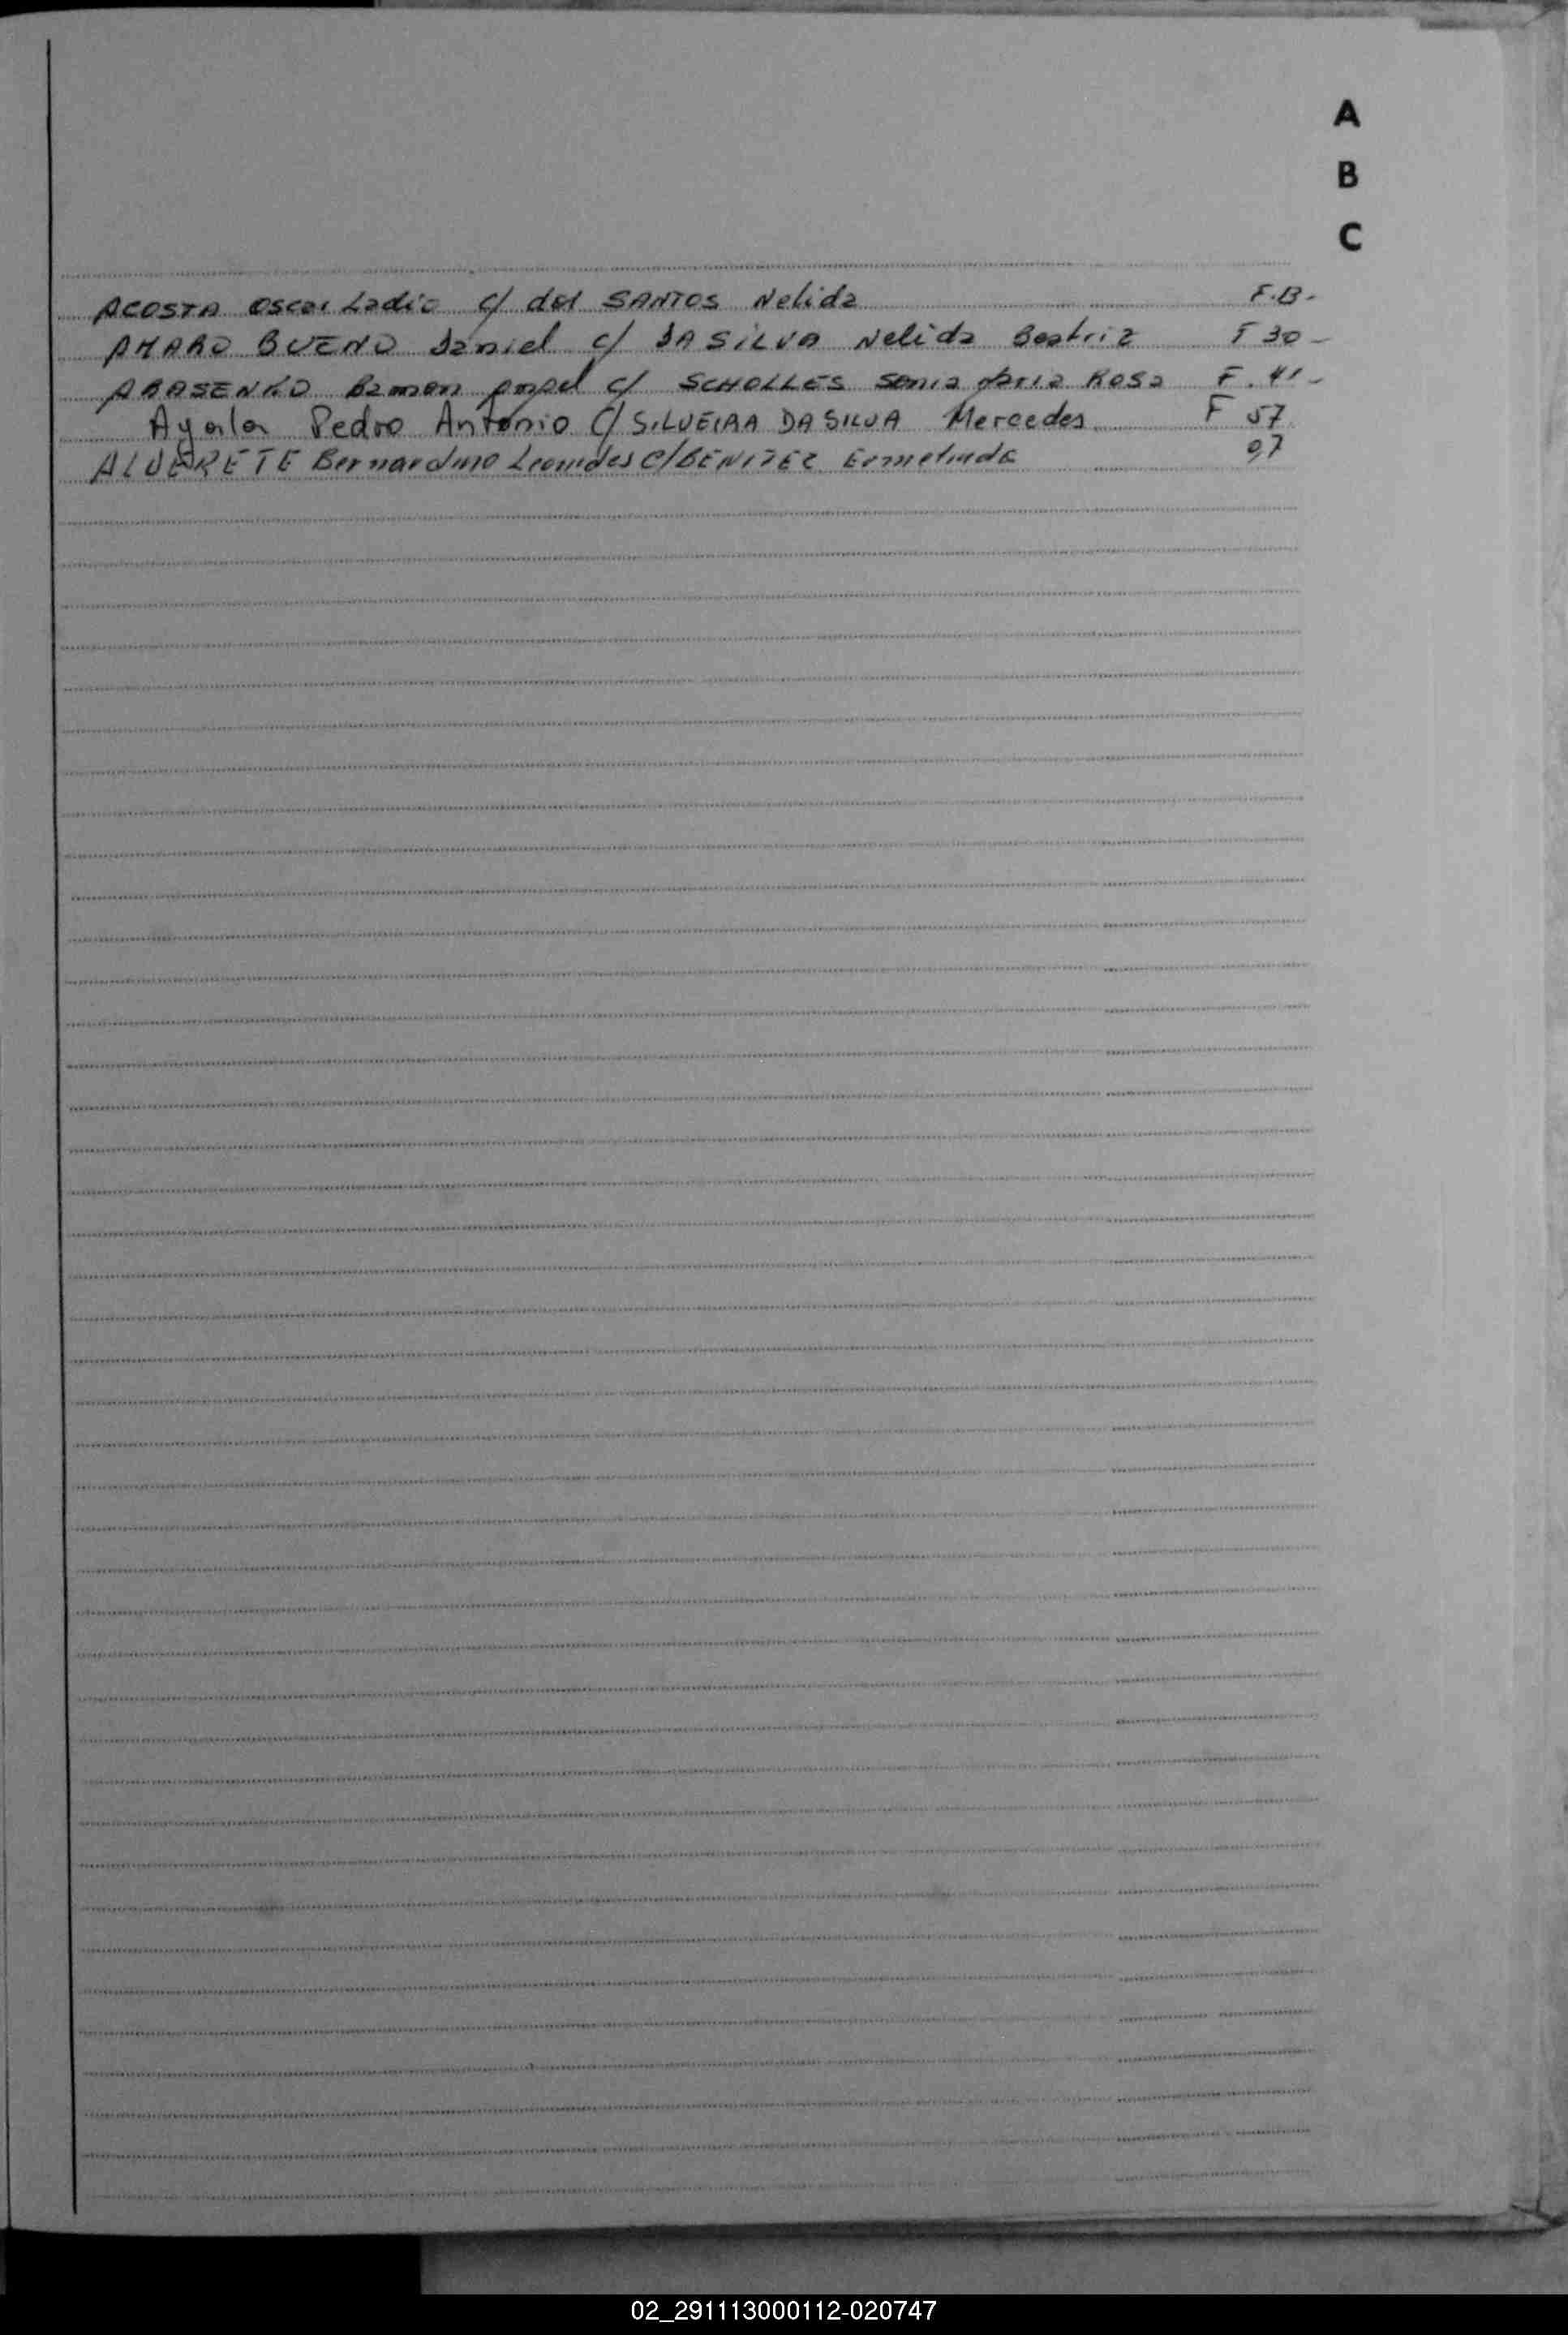 A
B
C
ACOSTA Oscar Ladio c/ dos SANTOS Nelida F.B.-
AMARO BUENO Daniel c/ DA SILVA Nelida Beatriz F 30-
Ramon c/ SCHOLLES Sonia Maria Rosa F. 41-
Ayala Pedro Antonio C/ SILVEIRA DA SILVA Mercedes F 57
ALVERETE Bernardino Leonides C/ BENITEZ 97
02_291113000112-020747